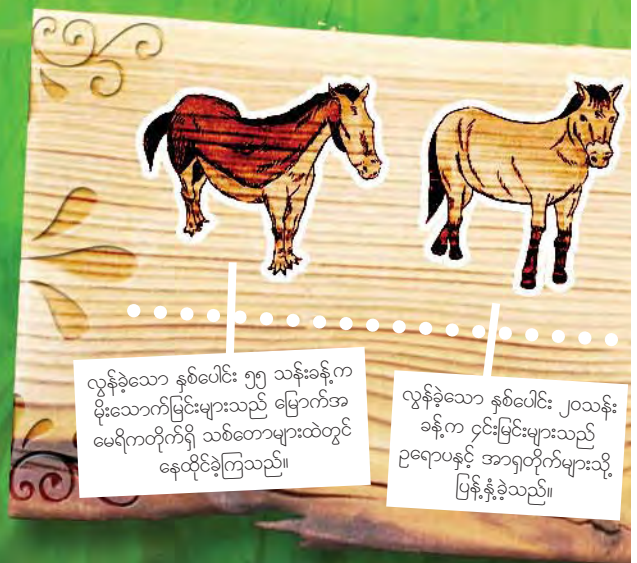 လွန်ခဲ့သော နှစ်ပေါင်း ၅၅ သန်းခန့်က
မိုးသောက်မြင်းများသည် မြောက်အ
မေရိကတိုက်ရှိ သစ်တောများထဲတွင်
နေထိုင်ခဲ့ကြသည်။
လွန်ခဲ့သော နှစ်ပေါင်း ၂၀သန်း
ခန့်က ၄င်းမြင်းများသည်
ဥရောပနှင့် အာရှတိုက်များသို့
ပြန့်နှံ့ခဲ့သည်။